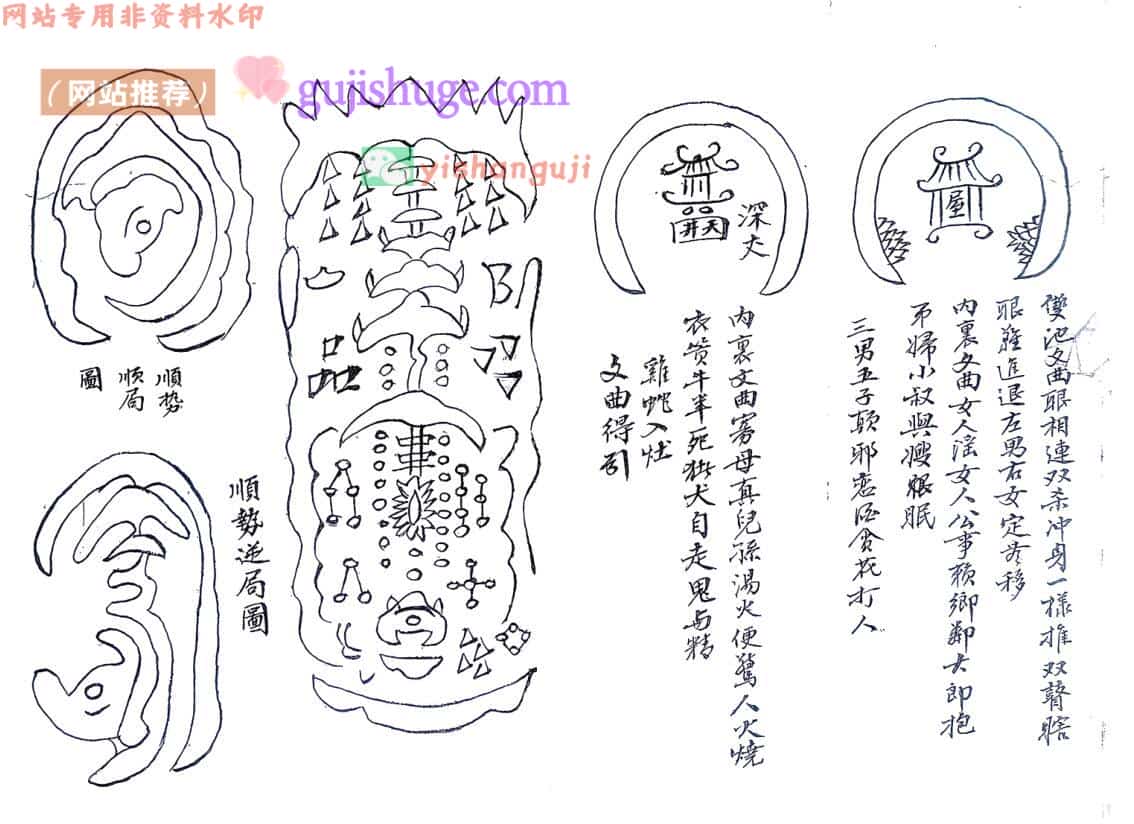 网站专用非资料水印
（网站推荐）
gujishuge.com
yishanguji
屋
雙池文曲眼相連双杀冲身一樣推双瞽瞎
眼難進退左男右女定無移
内裏文曲女人滛女人公事赖鄉鄰大郎抱
弟婦小叔與嫂眠
三男五子顛邪恋酒貪花打人
天井
深大
内裏文曲寡母真兒孫湯火便驚人火燒
衣賞牛羊死猪犬自走鬼与精
雞蛇入灶
文曲得引
順勢
順局
圖
順勢逆局圖